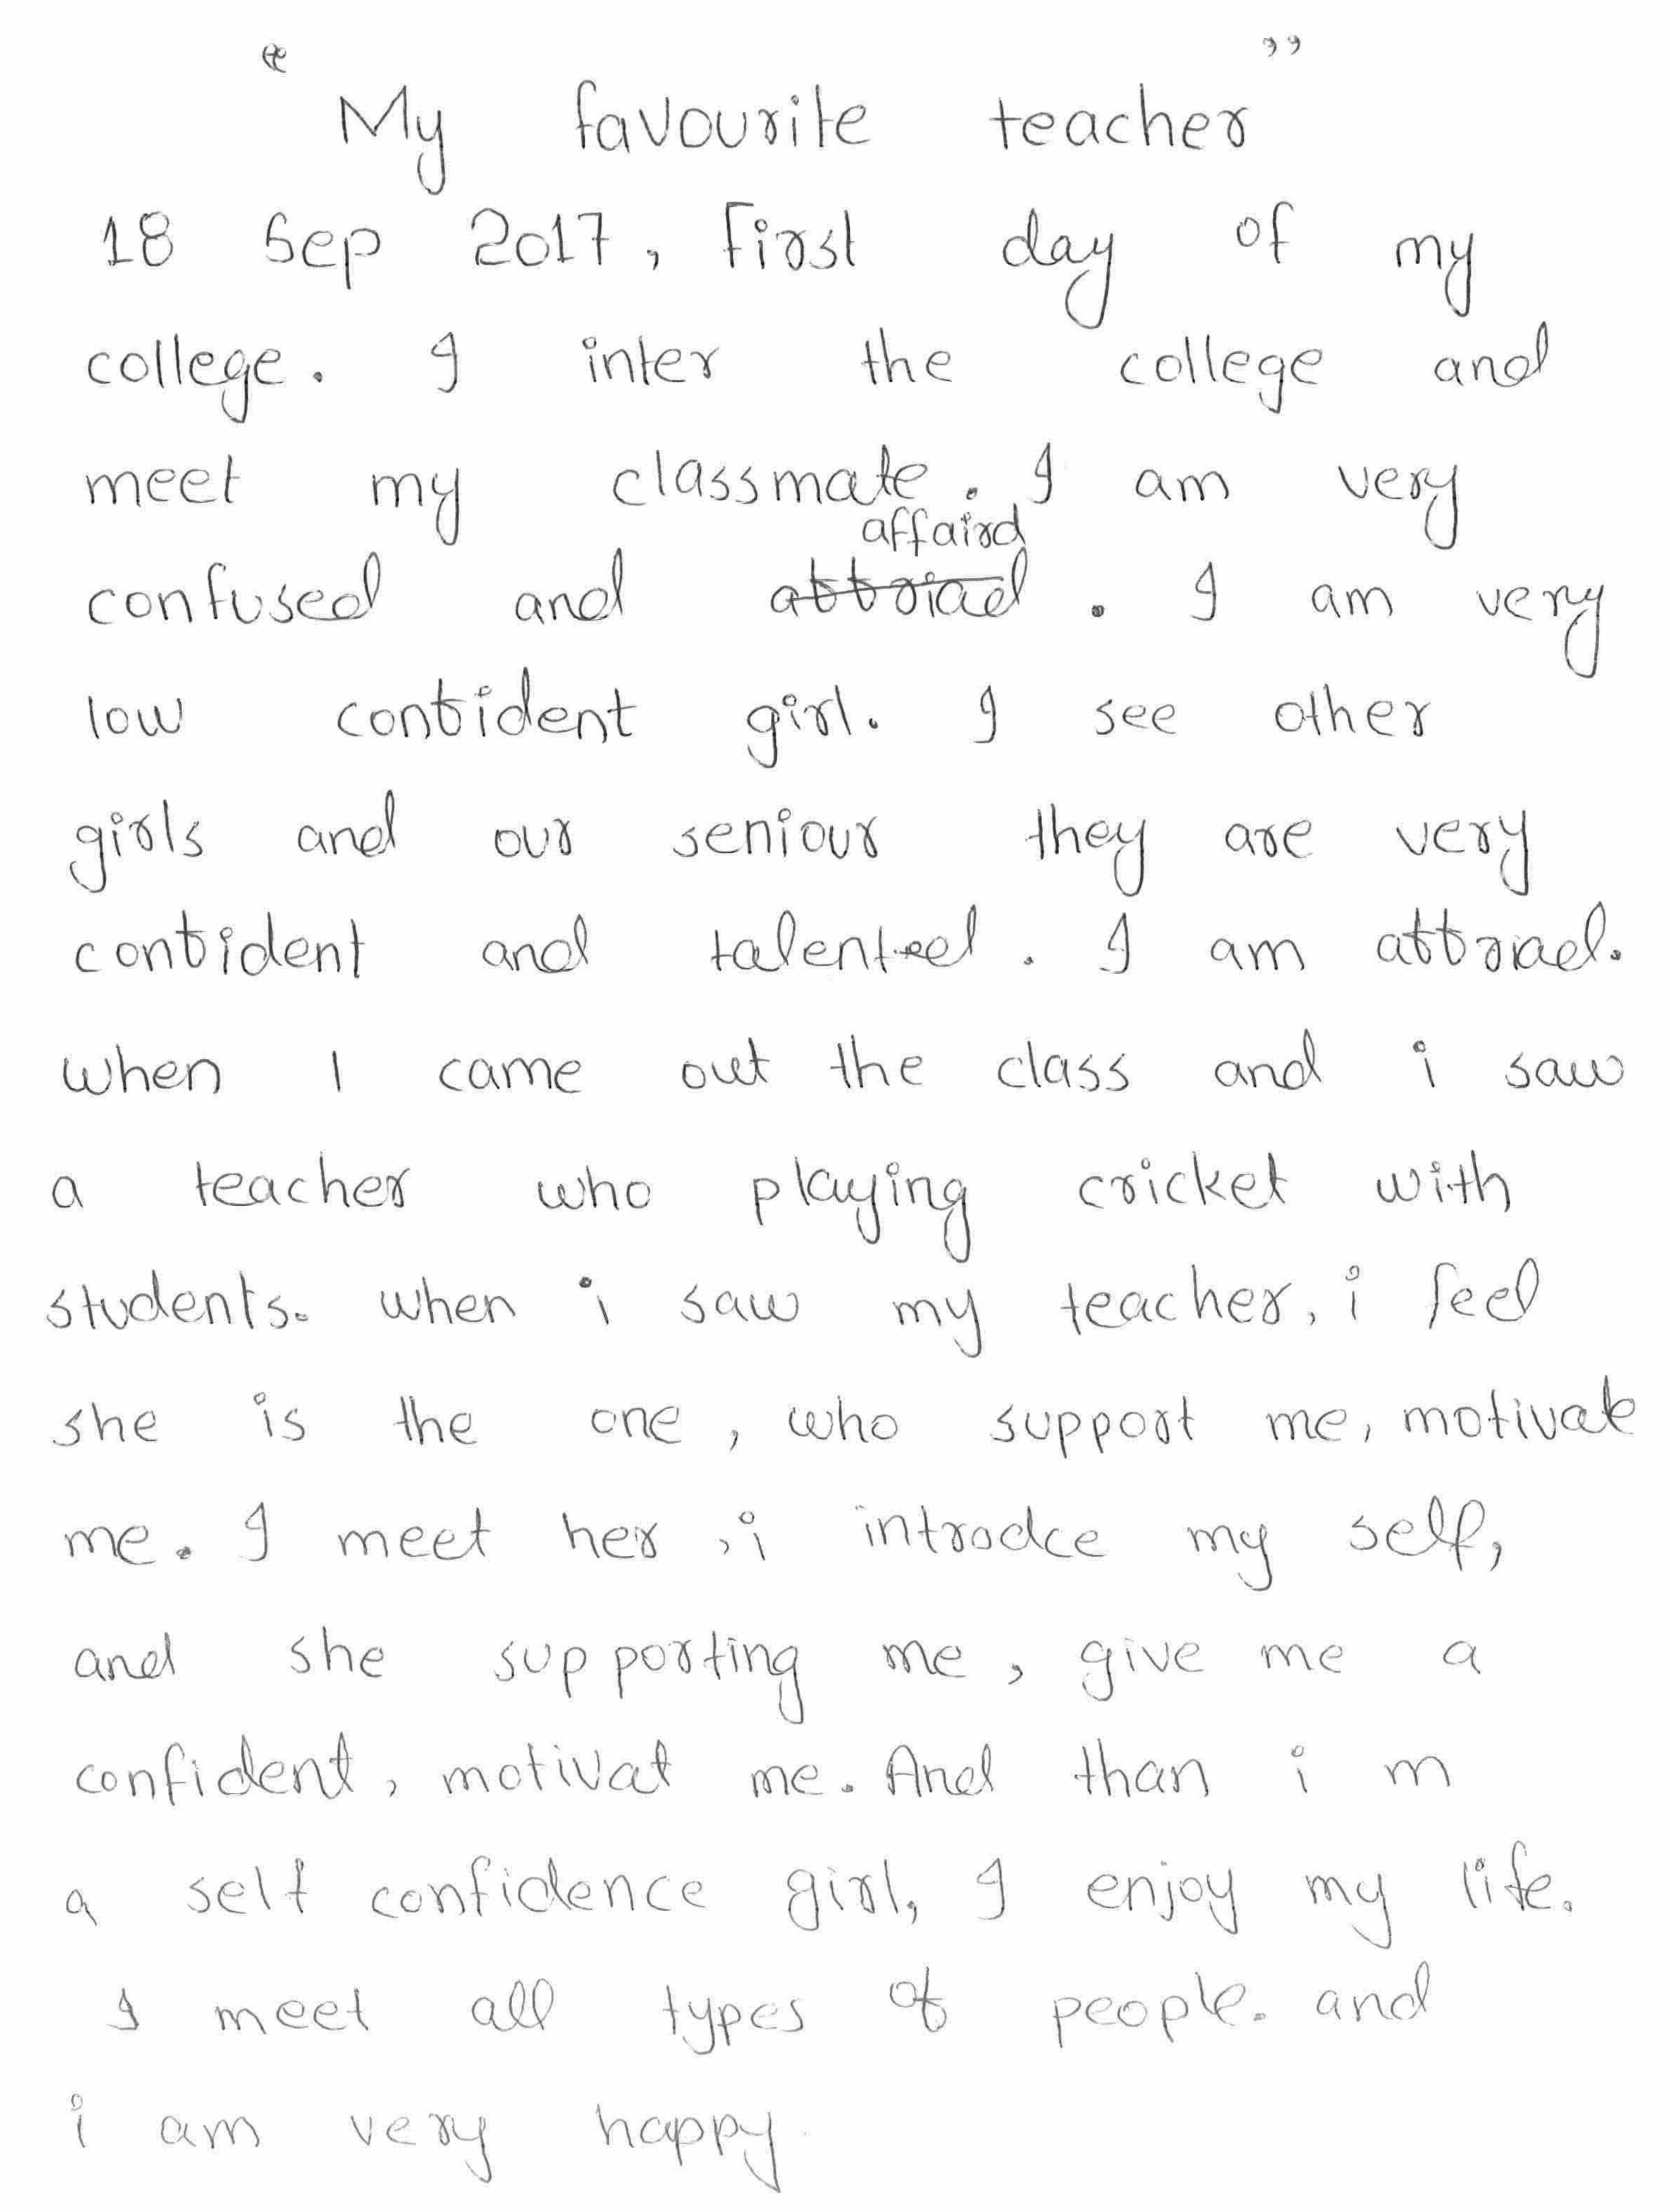 “ ”
My favourite teacher
18 Sep 2017, First day of my
college. I inter the college and
meet my classmate. I am very
affaird
confused and affraiad. I am very
low confident girl. I see other
girls and our seniour they are very
confident and talented. I am affraiad.
when I came out the class and i saw
a teacher who playing cricket with
students. when i saw my teacher, i feel
she is the one, who support me, motivate
me. I meet her, i introdce my self,
and she supporting me, give me a
confident, motivat me. And than i m
a self confidence girl, I enjoy my life.
I meet all types of people. and
i am very happy.